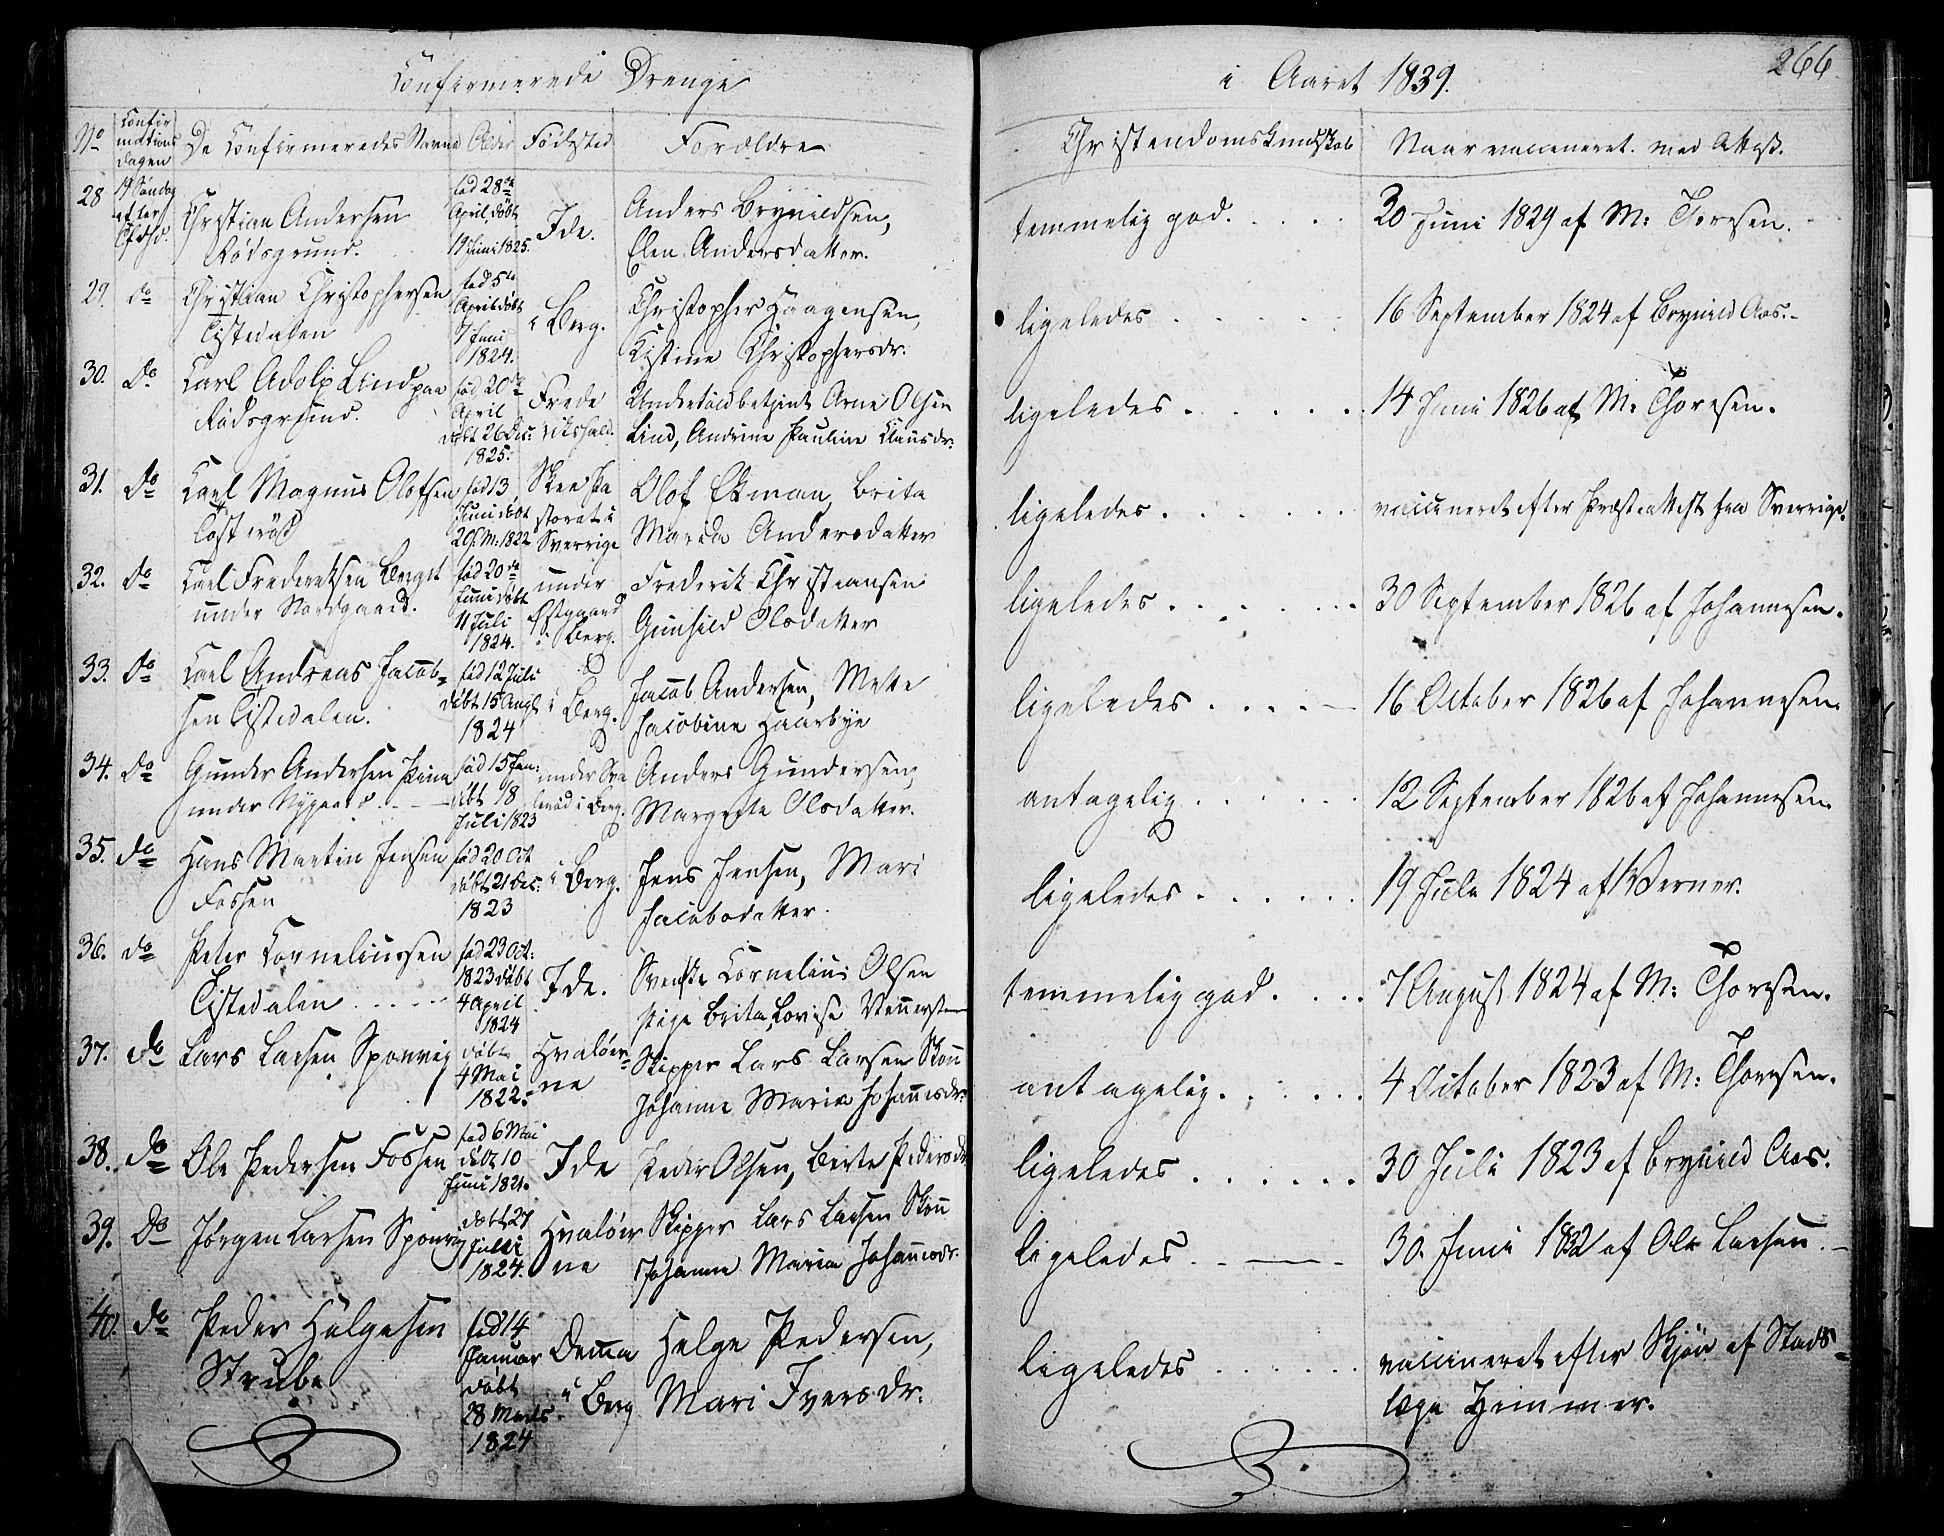 Confirmerede Drenge
i Aaret 1839.
266
No
Confir
mations
dagen
De Confirmeredes Navne
Alder
Fødested
Forældre
Christendomskundskab
Naar vaccineret. med Attest.
28
19 Søndag
efter
Christian Andersen
Rødsgrund.
fød 28de
April, døbt
19 Juni 1825.
Ide.
Anders Brynildsen,
Elen Andersdatter.
temmelig god.
30 Juni 1829 af M: Thoresen.
29.
do
Christian Christophersen
Tistedalen
fød 5te
April døbt
7 Juni
1824.
i Berg.
Christopher Haagensen,
Kistine Christophersdr.
ligeledes
16 September 1824 af Brynild Aas.
30.
Do
Carl Adolph Lind paa
Rødsgrund.
fød 20de
April
døbt 26 Dec:
1825.
Frede
rikshald.
Undertoldbetjent Arne Olsen
Lind, Andrine Pauline Clausdr.
ligeledes
14 Juni 1826 af M: Thoresen.
31.
do
Carl Magnus Olofsen
fød 13
Juni døbt
1822
Skee Pa
storat i
Sverrige
Olof Ekman, Brita
Maria Andersdatter
ligeledes
vaccineret efter Præsteattest fra Sverrige.
32.
do
Carl Frederiksen Berget
under Nordgaard.
fød 20de
Juni døbt
11 Juli
1824.
under
Østgaard
i Berg.
Frederik Christiansen
Gunhild Olsdatter
ligeledes
30 September 1826 af Johannesen.
33.
do
Carl Andreas Jacob=
sen Tistedalen.
fød 12 Juli
døbt 15 Augt
1824
i Berg.
Jacob Andersen, Mette
Jacobine Haarbye
ligeledes
16 October 1826 af Johannesen.
34.
do
Gunder Andersen
under Nygaard
fød 15 Jan:
døbt 18
Juli 1823
under
i Berg.
Anders Gundersen,
Margrethe Olsdatter.
antagelig
12 September 1826 af Johannesen.
35.
do
Hans Martin Jensen
Fossen
fød 20 Oct
døbt 21 Dec:
1823
i Berg.
Jens Jensen, Mari
Jacobsdatter.
ligeledes
19 Juli 1824 af Werner.
36.
do
Peter Corneliussen
Tistedalen
fød 23 Oct:
1823 døbt
4 April
1824
Ide.
Svenske Cornelius Olsen
pige Brita Lovise
temmelig god.
7 August 1824 af M: Thoresen.
37.
do
Lars Larsen Sponvig
døbt
4 Mai
1822.
Hvaløer=
ne
Skipper Lars Larsen
Johanne Maria Johannesdr.
antagelig.
4 October 1823 af M: Thoresen.
38.
do
Ole Pedersen Fossen
fød 6 Mai
døbt 10
Juni 1821.
Ide
Peder Olsen, Berte Pedersdr
ligeledes
30 Juli 1823 af Brynild Aas.
39.
Do
Jørgen Larsen Sponvig
døbt 27
Juli
1824.
Hvaløer
ne
Skipper Lars Larsen
Johanne Maria Johannesdr.
ligeledes
30. Juni 1832 af Ole Larsen.
40.
do
Peder Helgesen
Strube
fød 14
Januar
døbt
28 Marts
1824
Demma
i Berg
Helge Pedersen,
Mari Iversdr.
ligeledes
vaccineret efter Skjøn af Stads=
læge Heimmer.